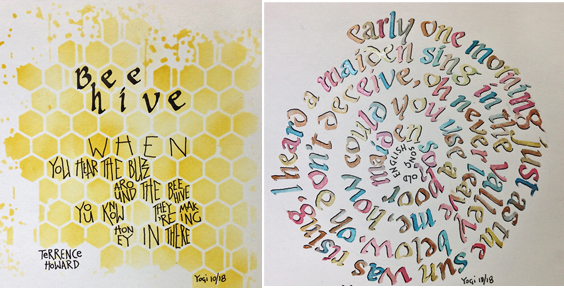 Bee
hive
WHEN
YOU HEAR THE BUZZ
AROUND THE BEEHIVE
YOU KNOW THEY'RE MAKING
HONEY IN THERE
TERRENCE
HOWARD
Yogi 10/18
early one morning just as the sun was rising, I heard a maiden sing in the valley below, oh don't deceive, oh never leave me, how could you use a poor maiden so
OLD ENGLISH SONG
Yogi 10/18